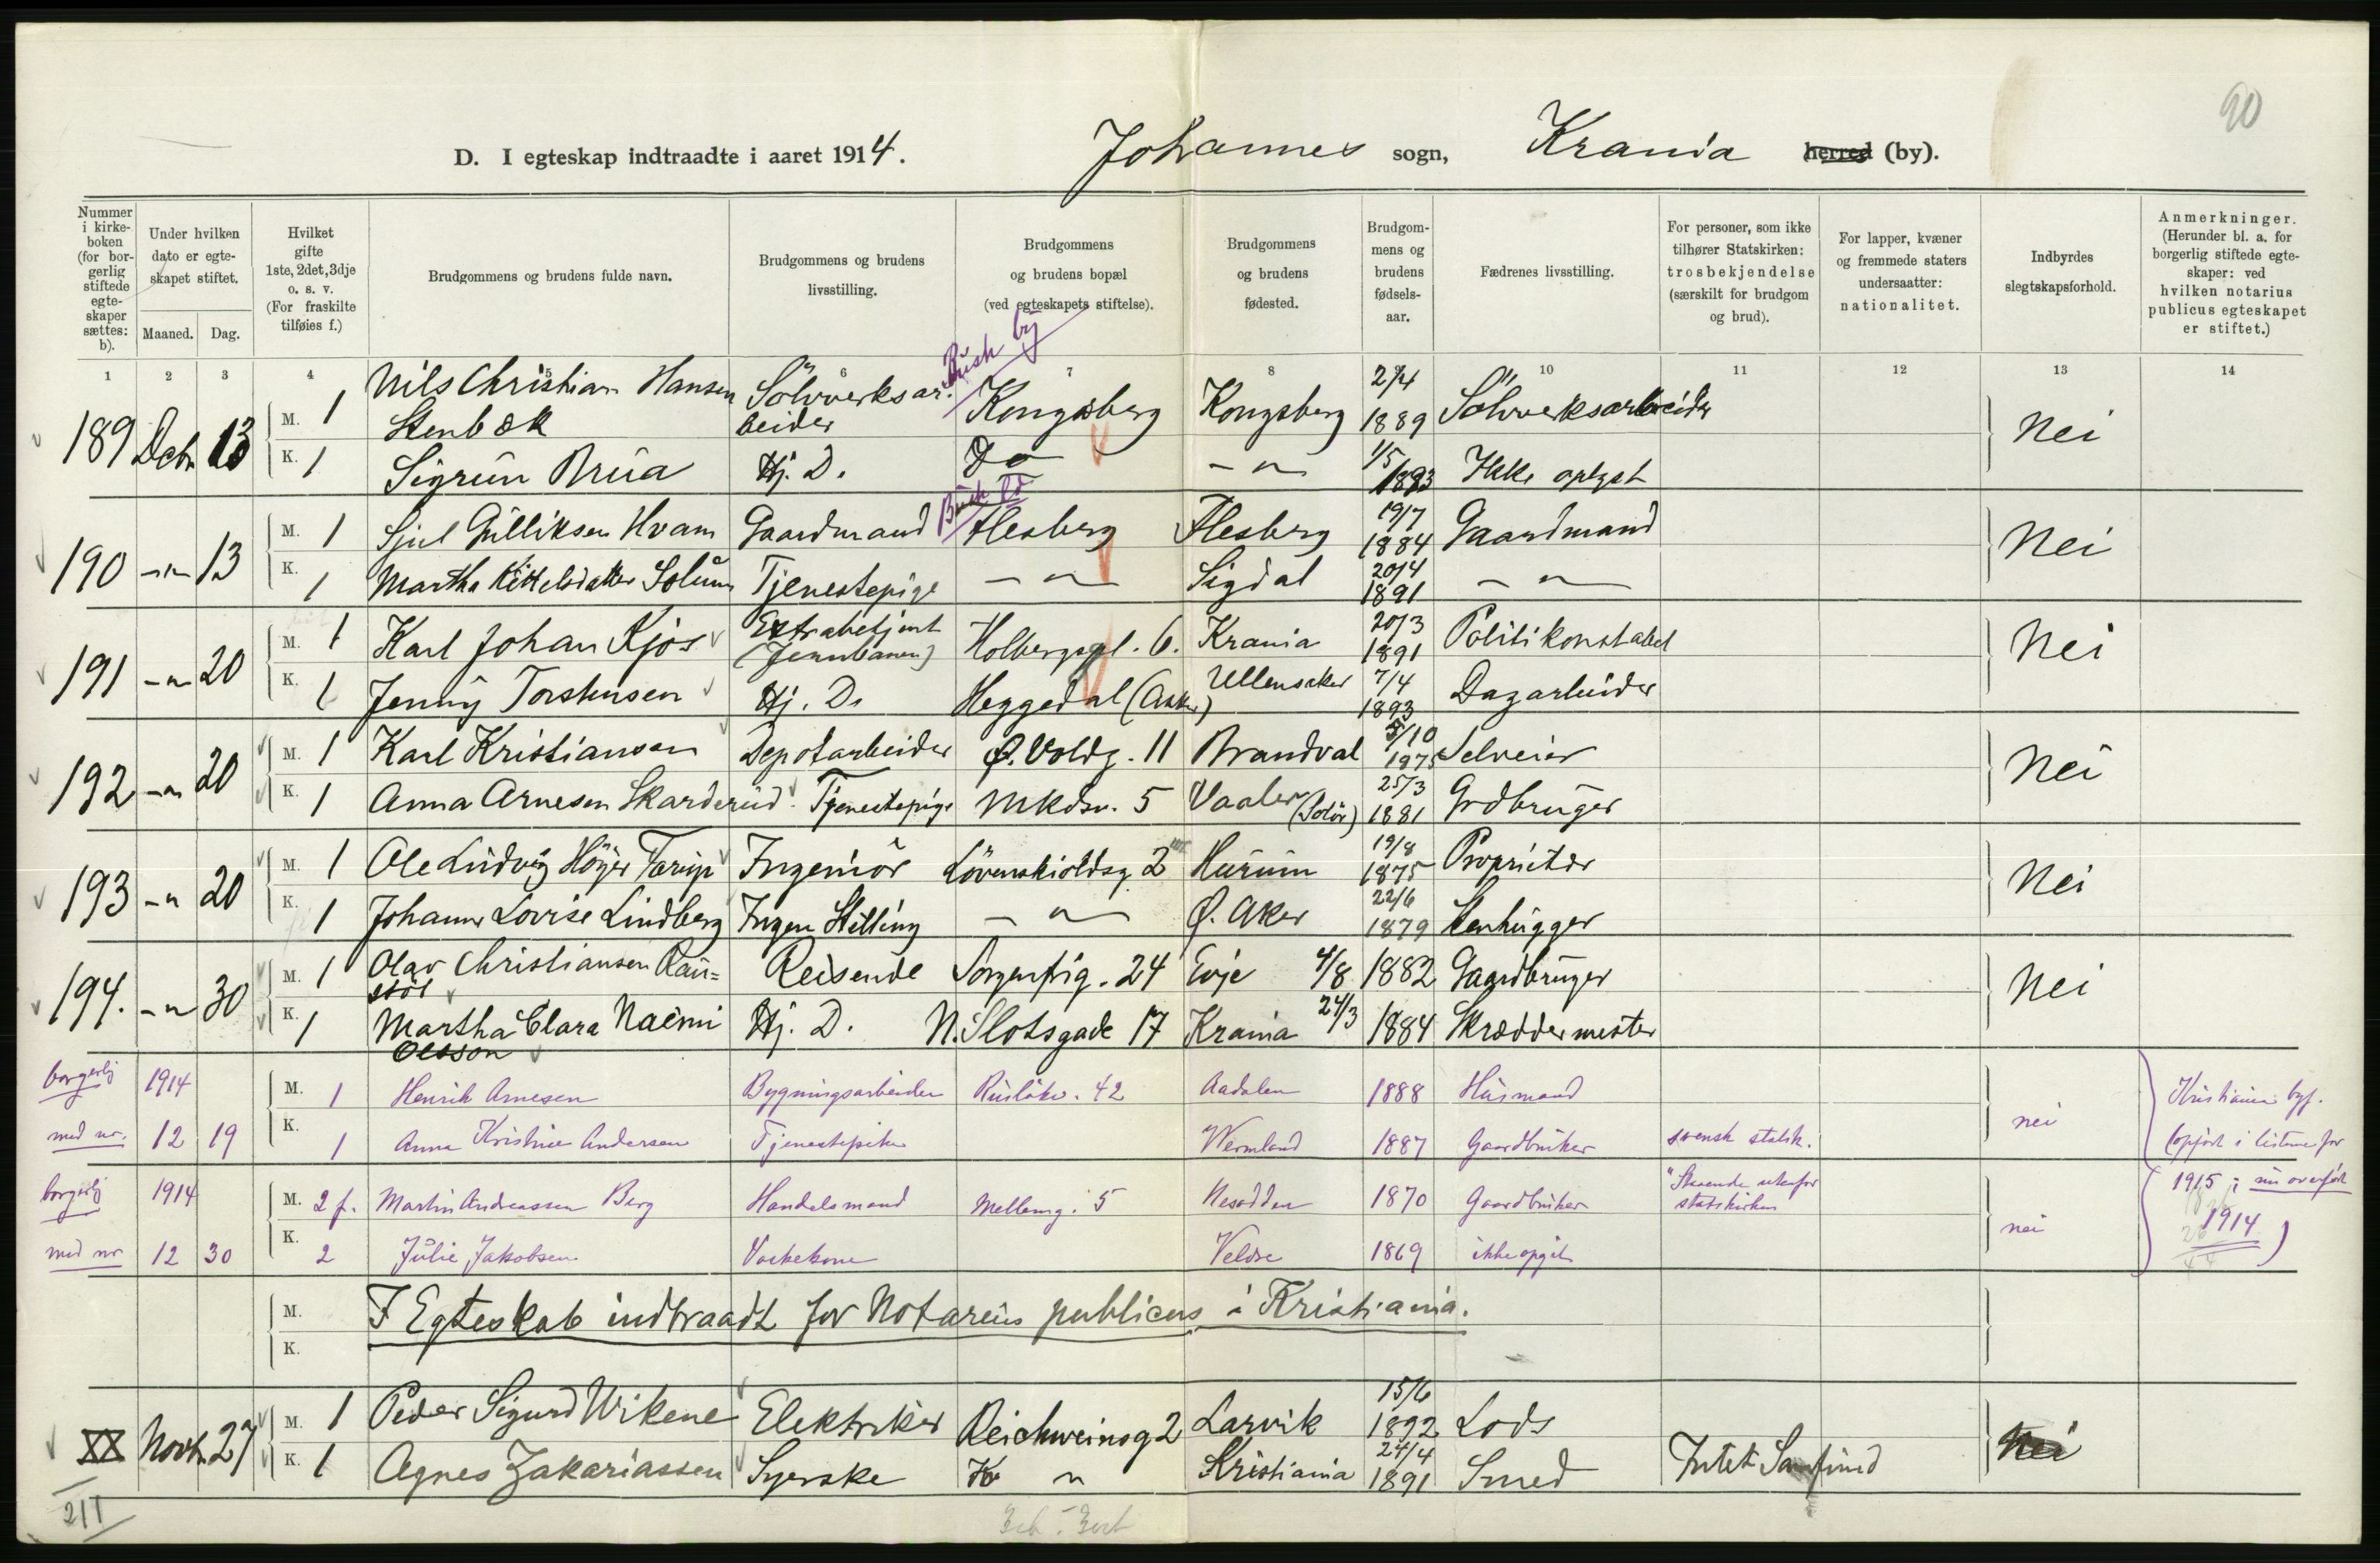 90
D. I egteskap indtraadte i aaret 1914. Johannes sogn, Krania herred (by).
Nummer i kirkeboken (for borgerlig stiftede egteskaper sættes: b).
Under hvilken dato er egteskapet stiftet.
Maaned. Dag.
Hvilket gifte 1ste, 2det, 3dje o. s. v. (For fraskilte tilføies f.)
Brudgommens og brudens fulde navn.
Brudgommens og brudens livsstilling.
Brudgommens og brudens bopæl (ved egteskapets stiftelse).
Brudgommens og brudens fødested.
Brudgommens og brudens fødselsaar.
Fædrenes livsstilling.
For personer, som ikke tilhører Statskirken: trosbekjendelse (særskilt for brudgom og brud).
For lapper, kvæner og fremmede staters undersaatter: nationalitet.
Indbyrdes slegtskapsforhold.
Anmerkninger. (Herunder bl. a. for borgerlig stiftede egteskaper: ved hvilken notarius publicus egteskapet er stiftet.)
1 2 3 4 5 6 7 8 10 11 12 13 14
Busk by
189 Decbr. 13 M. 1 Nils Christian Hansen Stenbæk Sölvverksarbeider Kongsberg Kongsberg 2/4 1889 Sölvverksarbeider Nei
K. 1 Sigrun Brua Hj. D. Do — " — 1/5 1893 Ikke oplyst
Busk Ld
190 — " — 13 M. 1 Sjul Gulliksen Hvam Gaardmand Flesberg Flesberg 19/7 1884 Gaardmand Nei
K. 1 Martha Kittelsdatter Solum Tjenestepige — " — Sigdal 20/4 1891 — " —
191 — " — 20 M. 1 Karl Johan Kjos Extrabetjent (Jernbanen) Holbergspl. 6. Krania 20/3 1891 Politikonstabel Nei
K. 1 Jenny Torstensen Hj. D. Heggedal (Asker) Ullensaker 7/4 1893 Dagarbeider
192 — " — 20 M. 1 Karl Kristiansen Depotarbeider Ø. Voldg. 11 Brandval 5/10 1875 Selveier Nei
K. 1 Anna Arnesen Skarderud Tjenestepige Mkdsv. 5 Vaaler (Solör) 25/3 1881 Grdbruger
193 — " — 20 M. 1 Ole Ludvig Höyer Tarup Ingeniör Lövenskioldsg 2 Hurum 19/8 1875 Proprietær Nei
K. 1 Johanne Lovise Lindberg Ingen Stilling — " — Ø. Aker 22/6 1879 Stenhugger
194. — " — 30 M. 1 Olav Christiansen Rau=
stöl Reisende Sorgenfrig. 24 Evje 4/8 1882 Gaardbruger Nei
K. 1 Martha Clara Naemi Olsson Hj. D. N. Slotsgade 17 Krania 24/3 1884 Skræddermester
borgerlj 1914 M. 1 Henrik Arnesen Bygningsarbeider Ruslökv. 42 Aadalen 1888 Husmand nei Kristiania byf.
med nr. 12 19 K. 1 Anna Kristine Andersen Tjenestepike Wermland 1887 Gaardbruker svensk statsk. (opført i listene for
borgerlj 1914 M. 2 f. Martin Andreassen Berg Handelsmand Mellemg. 5 Nesodden 1870 Gaardbruker "Staaende utenfor statskirken nei 1915; nu overført
med nr 12 30 K. 2 Julie Jakobsen Vaskekone Veldre 1869 ikke opgit 1914)
M. K. I Egteskab indtraadt for Notarius publicus i Kristiania.
XX Novbr. 27 M. 1 Peder Sigurd Wikene Elektriker Reichweinsg 2 Larvik 15/6 1892 Lods Nei
K. 1 Agnes Zakariassen Syerske " Kristiania 24/4 1891 Smed Intet Samfund
211